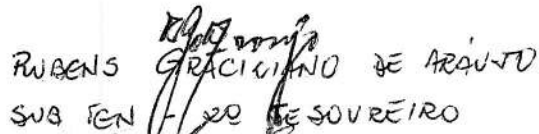 RUBENS GRACILIANO DE ARAÚJO
SUB TEN - TESOUREIRO